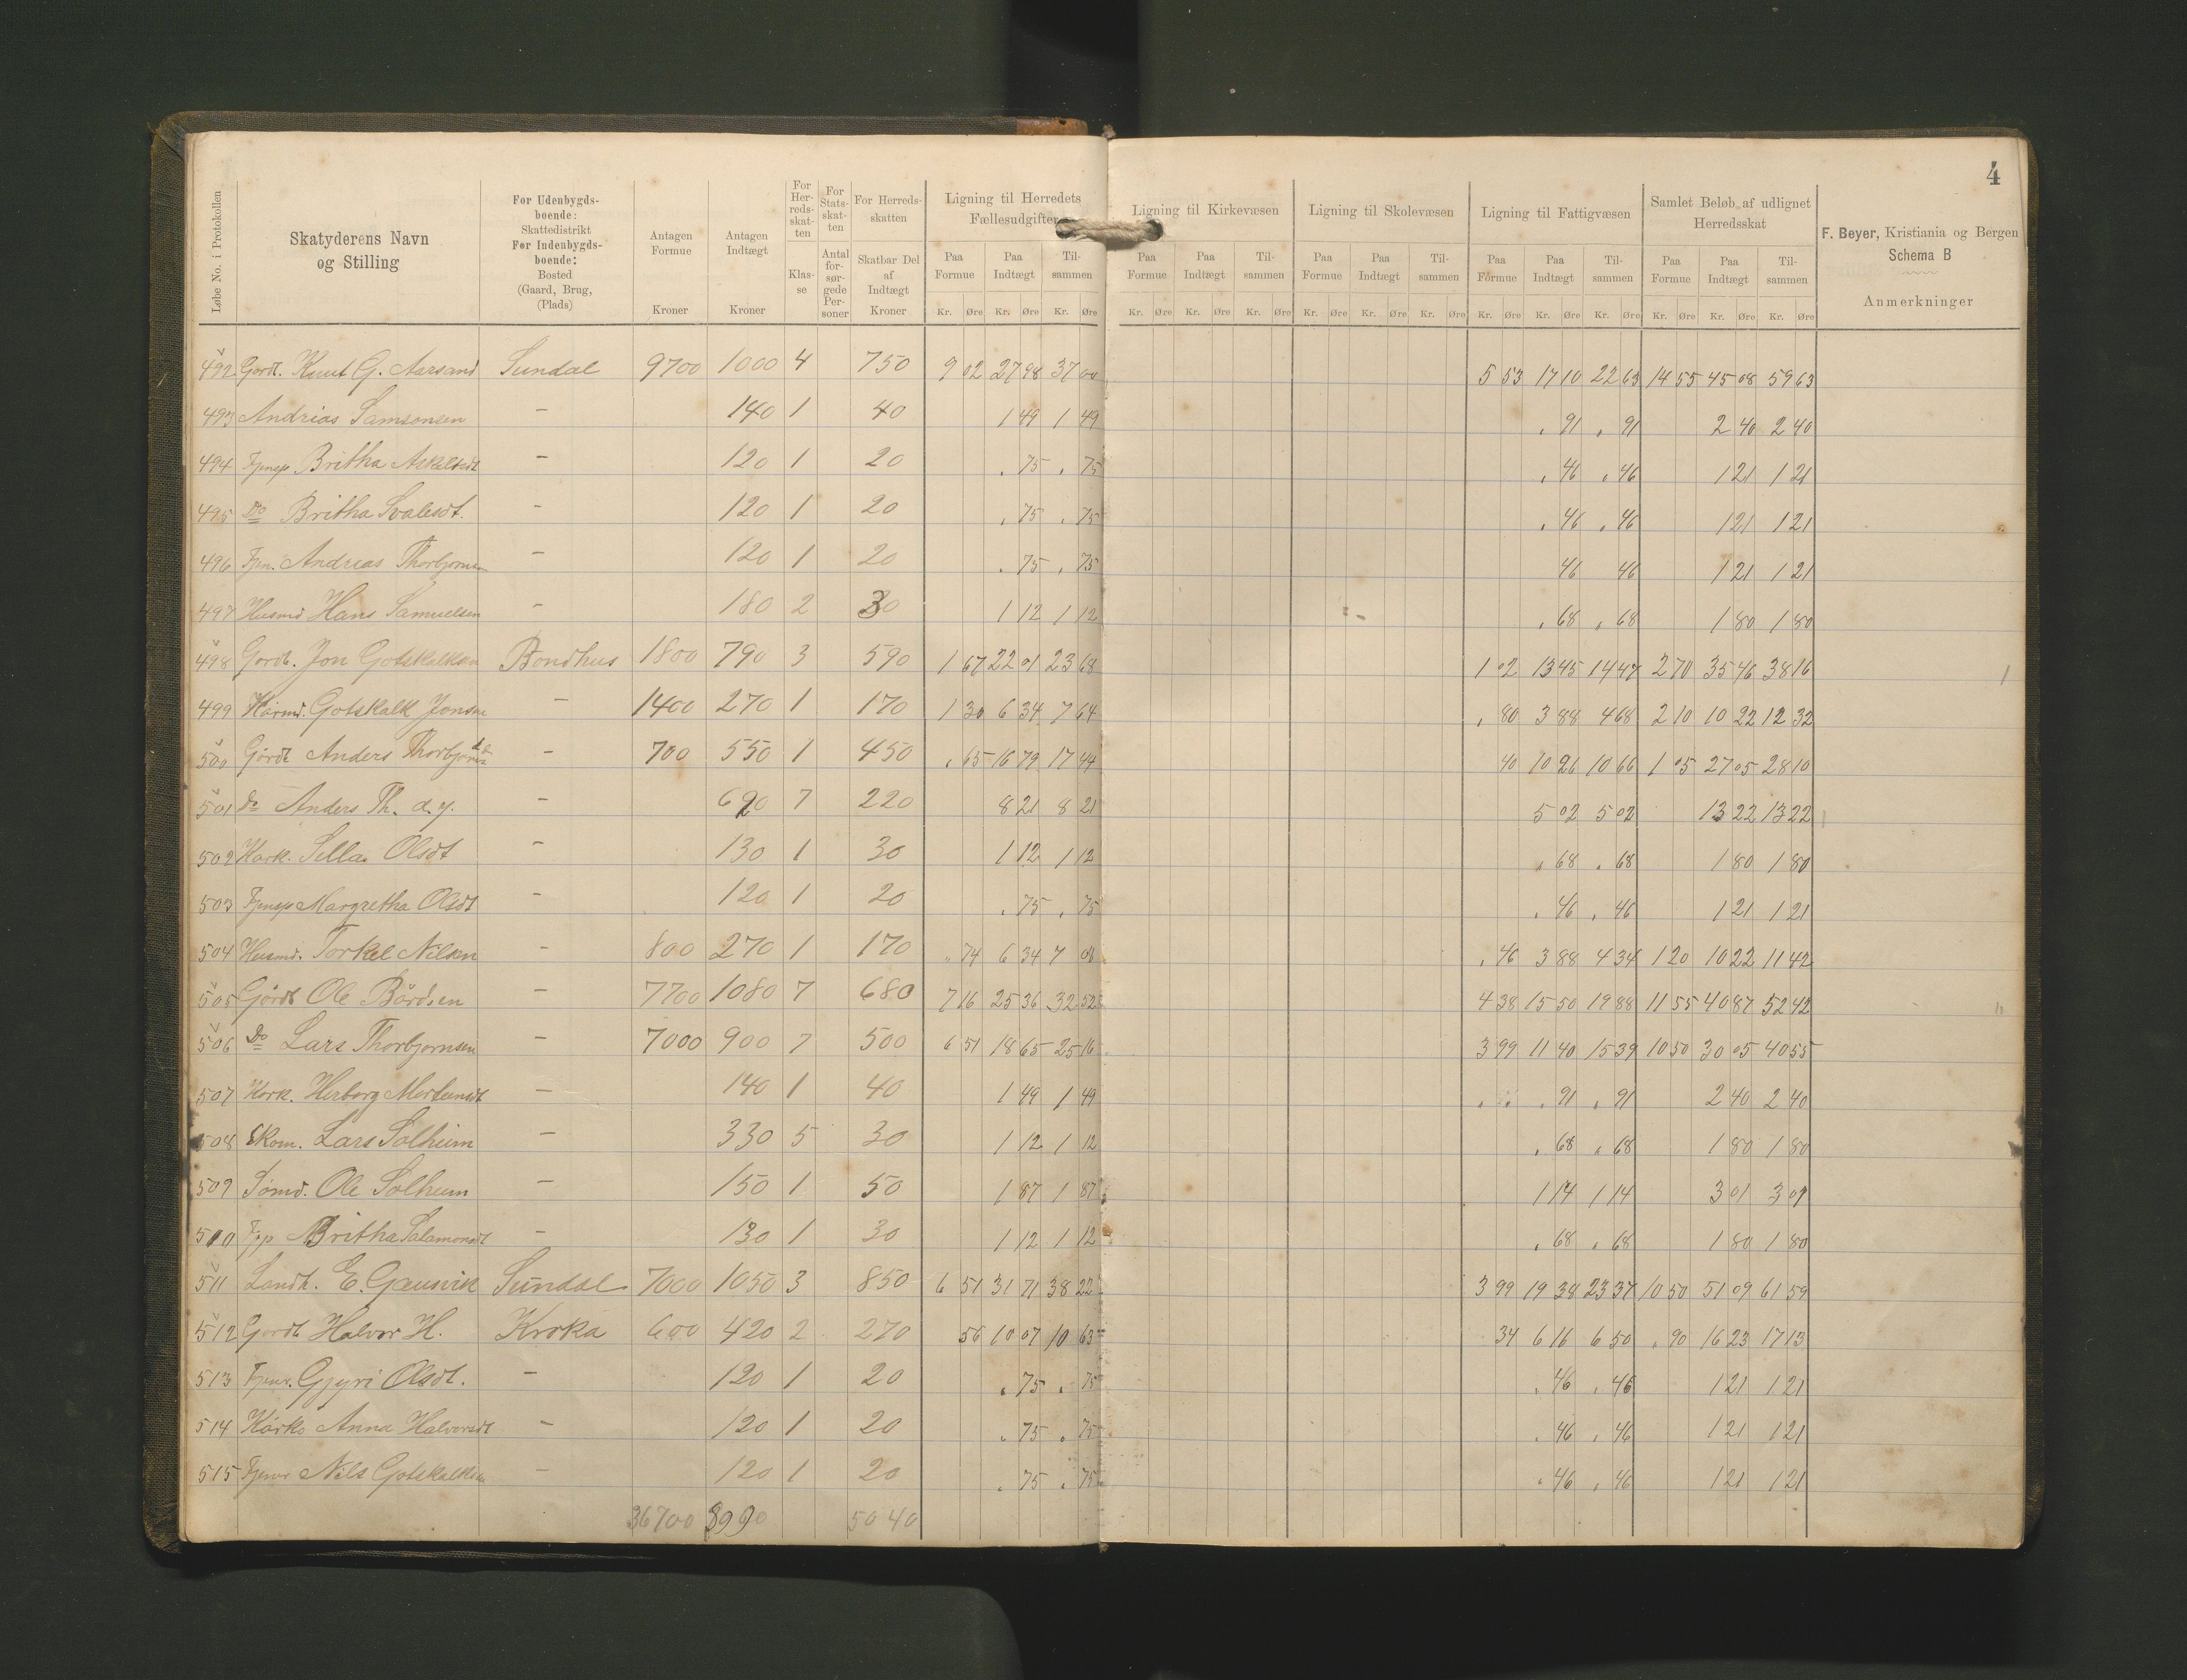 4
Løbe No. i Protokollen
Skatyderens Navn og Stilling
For Udenbygdsboende: Skattedistrikt For Indenbygdsboende: Bosted (Gaard, Brug, (Plads)
Antagen Formue Kroner
Antagen Indtægt Kroner
For Herredsskatten Klasse
For Statsskatten Antal forsørgede Personer
For Herredsskatten Skatbar Del af Indtægt Kroner
Ligning til Herredets Fællesudgifter
Ligning til Kirkevæsen
Ligning til Skolevæsen
Ligning til Fattigvæsen
Samlet Beløb af udlignet Herredsskat
Paa Formue Paa Indtægt Tilsammen Paa Formue Paa Indtægt Tilsammen Paa Formue Paa Indtægt Tilsammen Paa Formue Paa Indtægt Tilsammen Paa Formue Paa Indtægt Tilsammen
Kr. Øre Kr. Øre Kr. Øre Kr. Øre Kr. Øre Kr. Øre Kr. Øre Kr. Øre Kr. Øre Kr. Øre Kr. Øre Kr. Øre Kr. Øre Kr. Øre Kr. Øre
F. Beyer, Kristiania og Bergen
Schema B
Anmerkninger
492 Gardt. Knut G. Aarsand Sundal 9700 1000 4 750 9 02 27 98 37 00 5 53 17 10 22 63 14 55 45 08 59 63
493 Andrias Samsonsen - 140 1 40 1 49 1 49 . 91 . 91 2 40 2 40
494 Tjensp. Britha - 120 1 20 . 75 . 75 . 46 . 46 1 21 1 21
495 Do Britha - 120 1 20 . 75 . 75 . 46 . 46 1 21 1 21
496 Tjen. Andreas Thorbjornsen - 120 1 20 . 75 . 75 46 46 1 21 1 21
497 Husmd Hans Samuelsen - 180 2 30 1 12 1 12 . 68 . 68 1 80 1 80
498 Gardt. Jon Gotskalksen Bondhus 1800 790 3 590 1 67 22 01 23 68 1 02 13 45 14 47 2 70 35 46 38 16
499 Kaarmd. Gotskalk Jonsen - 1400 270 1 170 1 30 6 34 7 64 . 80 3 88 4 68 2 10 10 22 12 32
500 Gardt Anders Thorbjorns - 700 550 1 450 . 65 16 79 17 44 40 10 26 10 66 1 05 27 05 28 10
501 Do Anders Th. d.y. - 690 7 220 8 21 8 21 5 02 5 02 13 22 13 22
502 Kark. Sella Olsdt - 130 1 30 1 12 1 12 . 68 . 68 1 80 1 80
503 Tjensp Margretha Olsdt - 120 1 20 . 75 . 75 . 46 . 46 1 21 1 21
504 Husmd. Torkel Nilsen - 800 270 1 170 . 74 6 34 7 08 . 46 3 88 4 34 1 20 10 22 11 42
505 Gårdt Ole Bårdsen - 7700 1080 7 680 7 16 25 36 32 52 4 38 15 50 19 88 11 55 40 87 52 42
506 Do Lars Thorbjornsen - 7000 900 7 500 6 51 18 65 25 16 3 99 11 40 15 39 10 50 30 05 40 55
507 Kark. Herborg - 140 1 40 1 49 1 49 . . . 91 . 91 2 40 2 40
508 Skom. Lars Solheim - 330 5 30 1 12 1 12 . 68 . 68 1 80 1 80
509 Sømd. Ole Solheim - 150 1 50 1 87 1 87 1 14 1 14 3 01 3 01
510 Tjp Britha Salamonsdt - 130 1 30 1 12 1 12 . 68 . 68 1 80 1 80
511 Landh. E. Gausvik Sundal 7000 1050 3 850 6 51 31 71 38 22 3 99 19 38 23 37 10 50 51 09 61 59
512 Gardt Halvor H. Kroka 600 420 2 270 56 10 07 10 63 34 6 16 6 50 . 90 16 23 17 13
513 Tjenr. Gjyri Olsdt. - 120 1 20 . 75 . 75 . 46 . 46 1 21 1 21
514 Kårko Anna Halvorsdt - 120 1 20 . 75 . 75 . 46 . 46 1 21 1 21
515 Tjenr Nils Gotskalksen - 120 1 20 . 75 . 75 . 46 . 46 1 21 1 21
36700 8990 5040